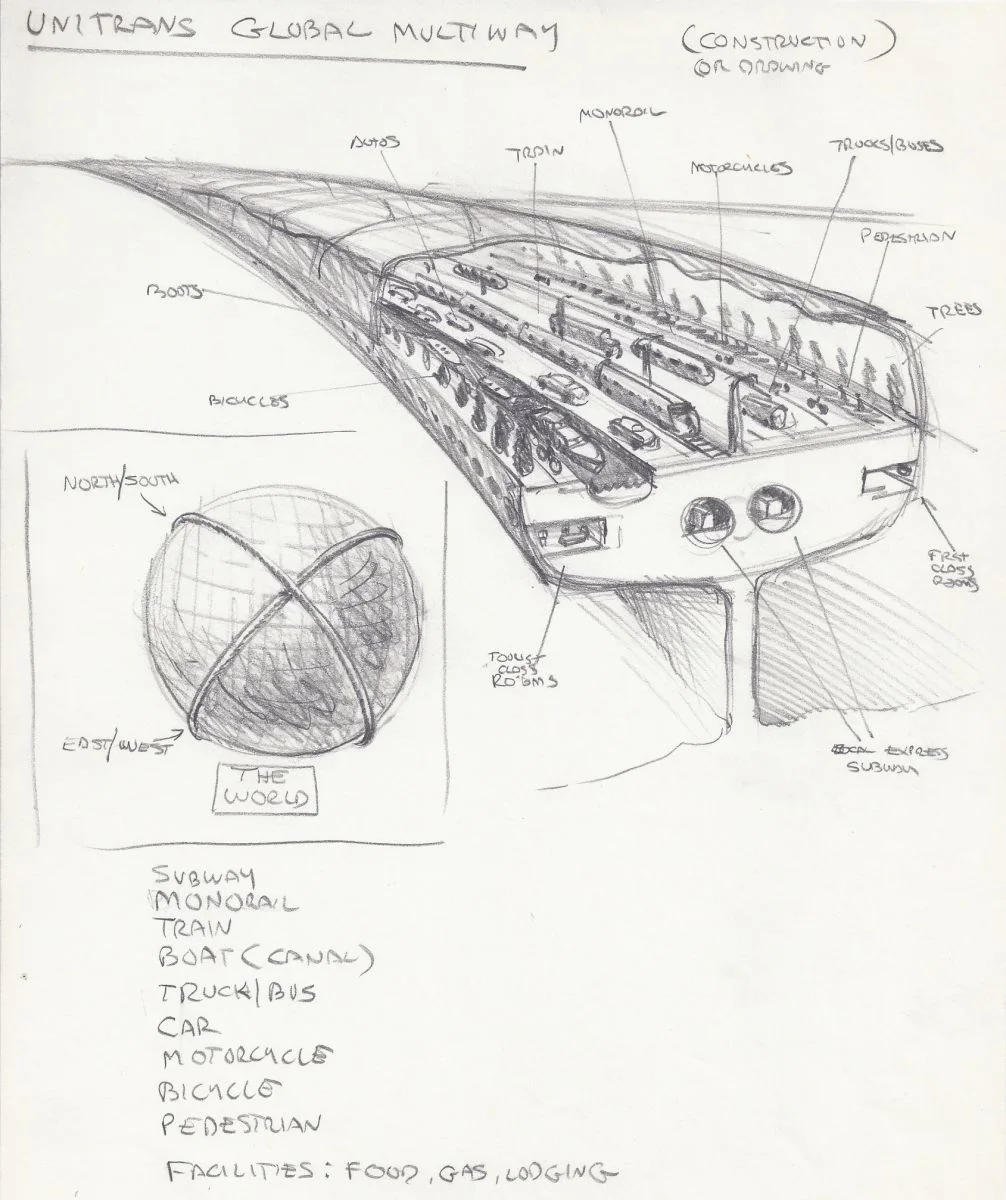 UNITRANS GLOBAL MULTIWAY
(CONSTRUCTION)
OR DRAWING
MONORAIL
AUTOS
TRAIN
MOTORCYCLES
TRUCKS/BUSES
PEDESTRIAN
TREES
BOATS
BICYCLES
NORTH/SOUTH
EAST/WEST
THE
WORLD
TOURIST
CLASS
ROOMS
FIRST
CLASS
ROOMS
LOCAL EXPRESS
SUBWAY
SUBWAY
MONORAIL
TRAIN
BOAT (CANAL)
TRUCK/BUS
CAR
MOTORCYCLE
BICYCLE
PEDESTRIAN
FACILITIES: FOOD, GAS, LODGING